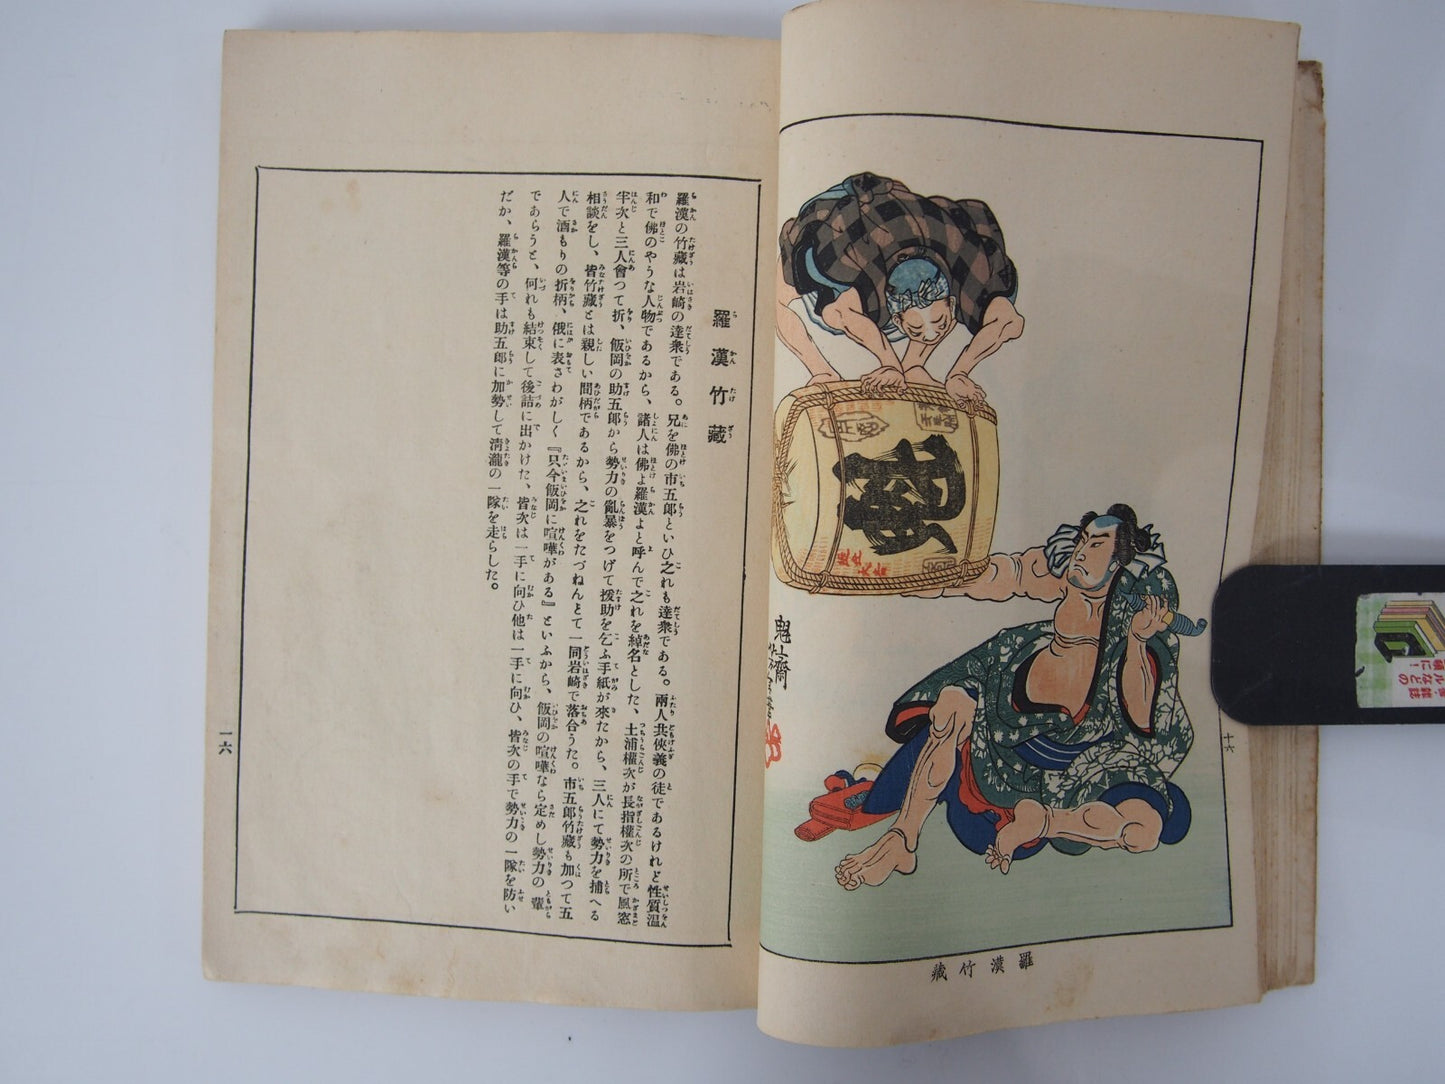 羅漢竹藏
羅漢の竹藏は岩崎の達衆である。兄を佛の市五郎といひ之れも達衆である。兩人共俠義の徒であるけれど性質溫
和で佛のやうな人物であるから、諸人は佛よ羅漢よと呼んで之れを綽名とした、土浦權次が長指權次の所で風窓
半次と三人會つて折、飯岡の助五郎から勢力の亂暴をつげて援助を乞ふ手紙が來たから、三人にて勢力を捕へる
相談をし、皆竹藏とは親しい間柄であるから、之れをたづねんとて一同岩崎で落合うた。市五郎竹藏も加つて五
人で酒もりの折柄、俄に表さわがしく『只今飯岡に喧嘩がある』といふから、飯岡の喧嘩なら定めし勢力の輩
であらうと、何れも結束して後詰に出かけた、皆次は一手に向ひ他は一手に向ひ、皆次の手で勢力の一隊を防い
だか、羅漢等の手は助五郎に加勢して淸瀧の一隊を走らした。
一六
魁斎
羅漢竹藏
十六